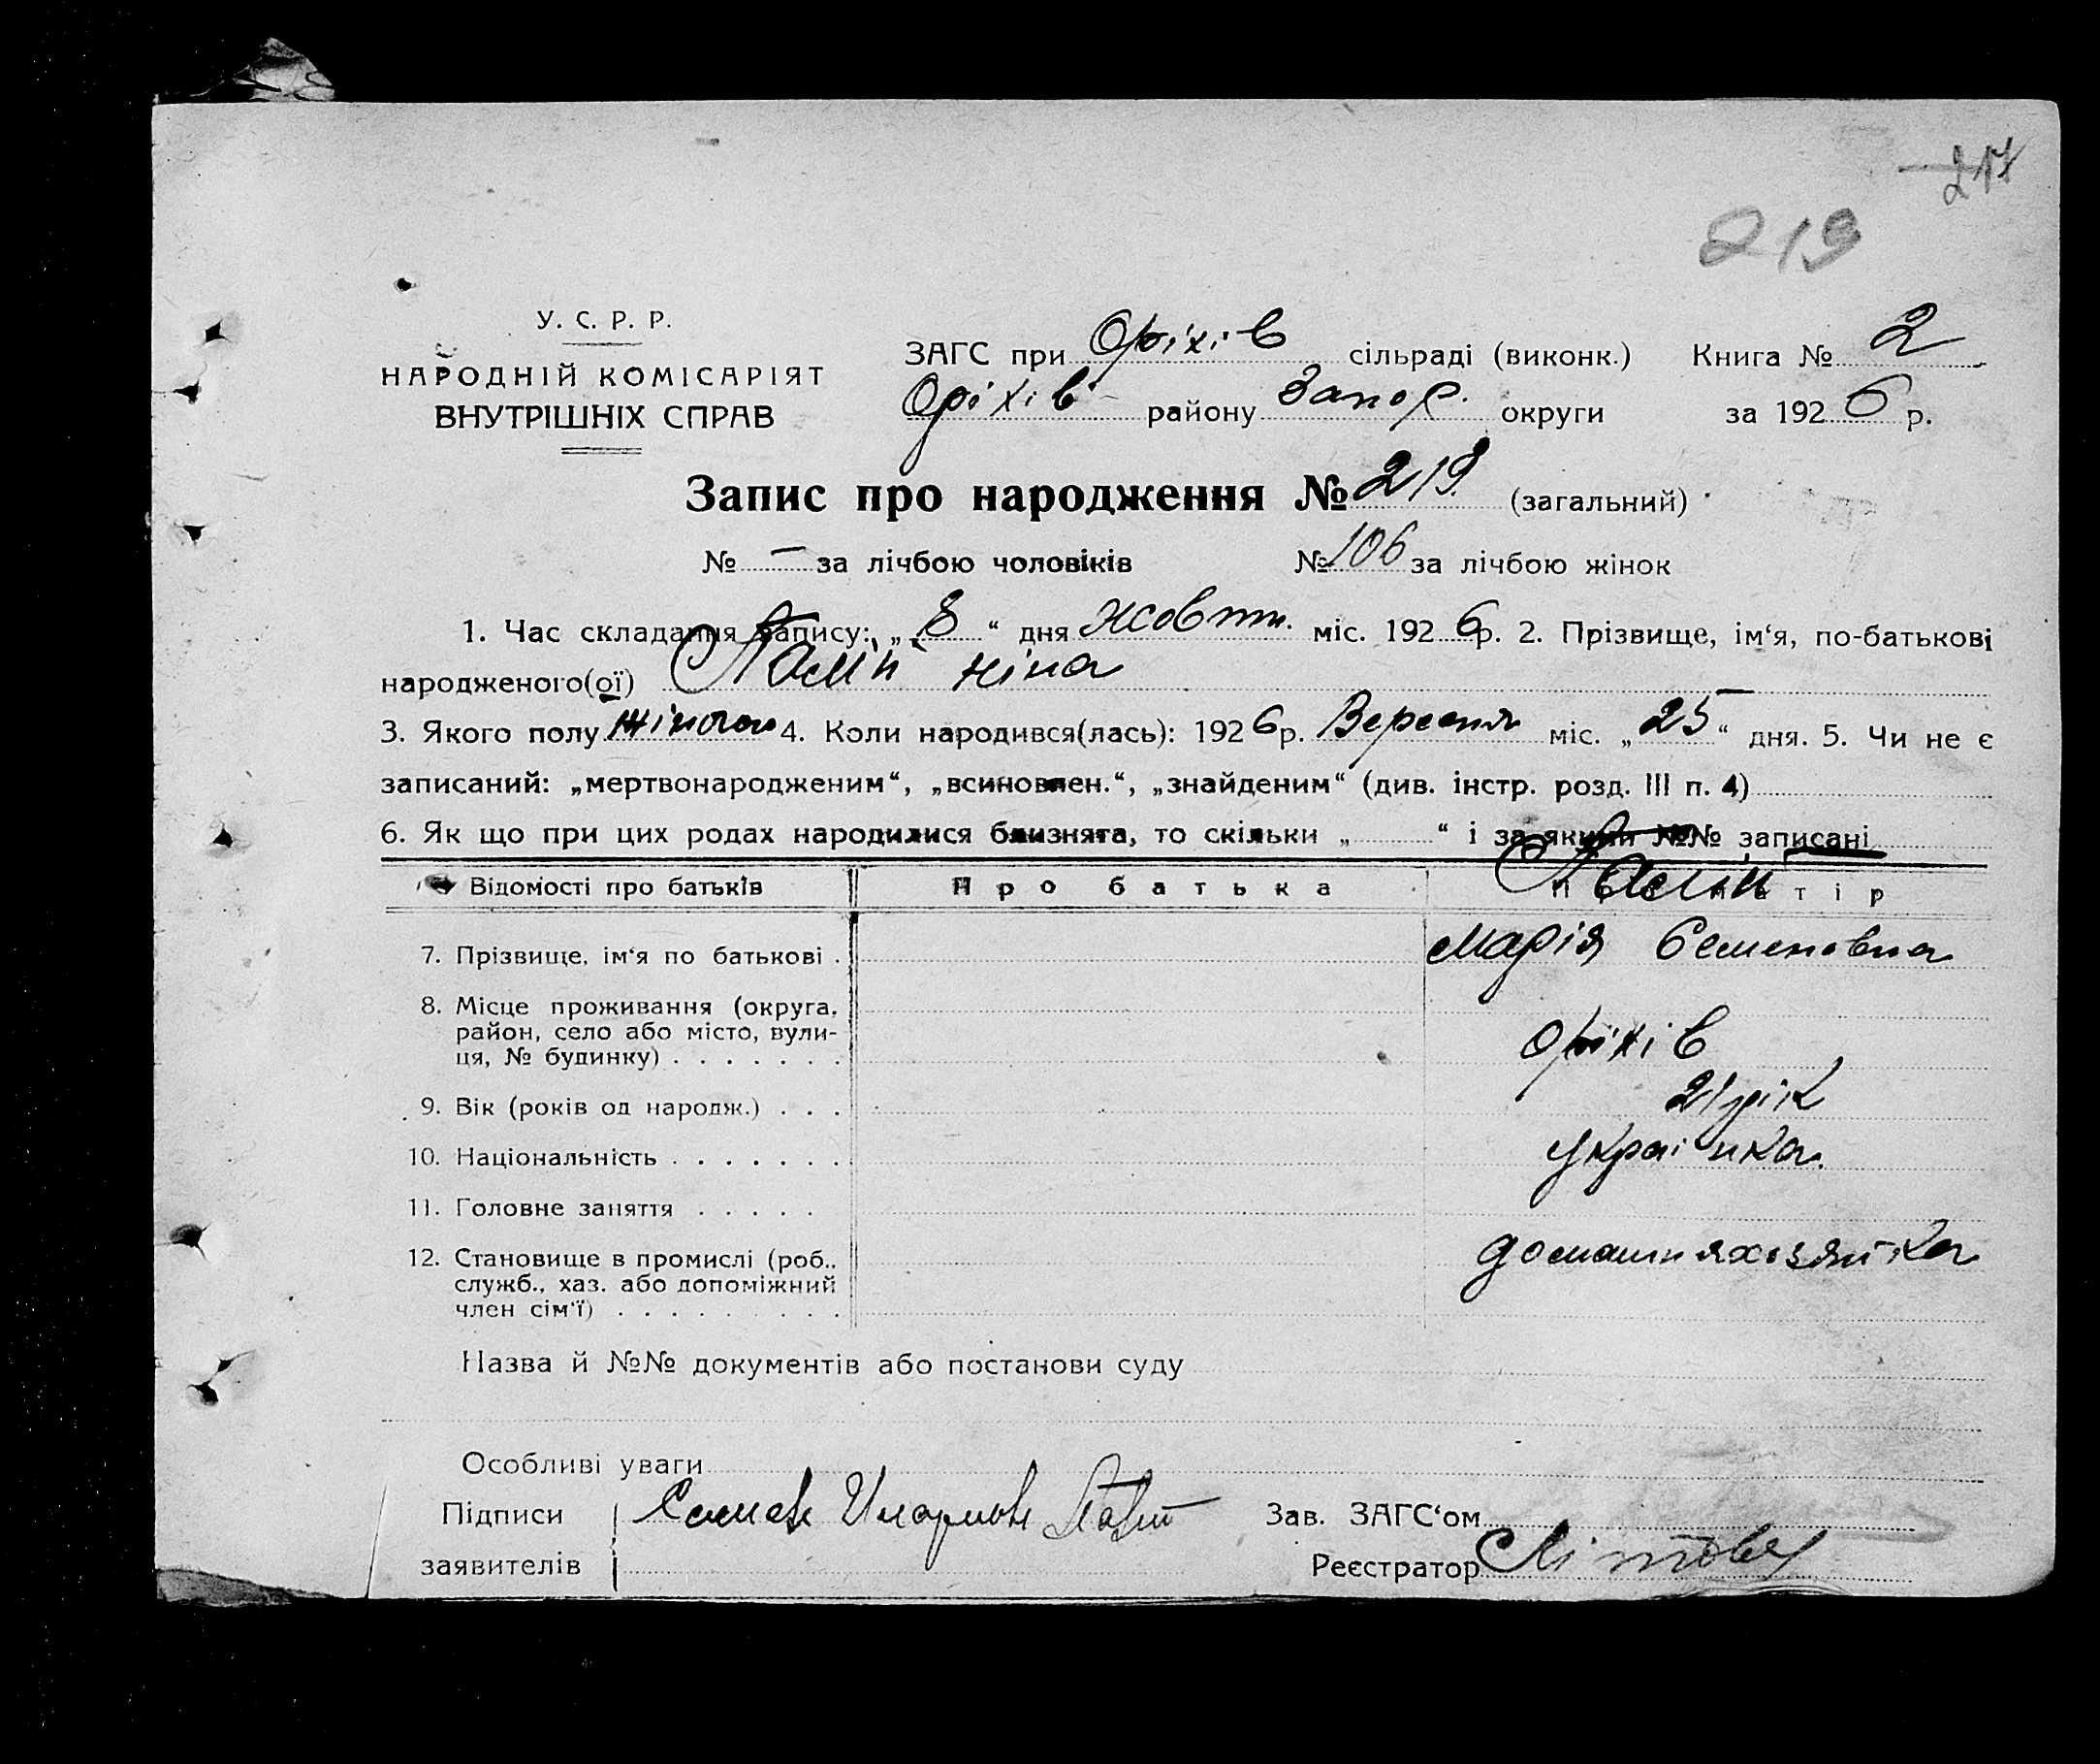 219
У. С. Р. Р.
НАРОДНІЙ КОМІСАРІЯТ
ВНУТРІШНІХ СПРАВ
ЗАГС при Оріхів сільраді (виконк.) Книга № 2
Оріхів району Запор. округи за 1926 р.
Запис про народження № 219. (загальний)
№ — за лічбою чоловіків № 106 за лічбою жінок
1. Час складання запису: „8“ дня жовтн. міс. 1926р. 2. Прізвище, ім‘я, по-батькові
народженого(ої) Ніна
3. Якого полу жіноча 4. Коли народився(лась): 1926р. Вересня міс. „25“ дня. 5. Чи не є
записаний: „мертвонародженим“, „всиновлен.“, „знайденим“ (див. інстр. розд. III п. 4)
6. Як що при цих родах народилися близнята, то скільки „ “ і за якими №№ записані
Відомості про батьків Про батька Про матір
7. Прізвище, ім‘я по батькові . Марія Семеновна
8. Місце проживання (округа,
район, село або місто, вули-
ця, № будинку) . . . . . . . Оріхів
9. Вік (років од народж.) . . . 21 рік
10. Національність . . . . . . . українка
11. Головне заняття . . . . .
12. Становище в промислі (роб.,
служб., хаз. або допоміжний
член сім‘ї) . . . . . . . . . домашняхозяйка
Назва й №№ документів або постанови суду
Особливі уваги
Підписи Зав. ЗАГС‘ом
заявителів Реєстратор